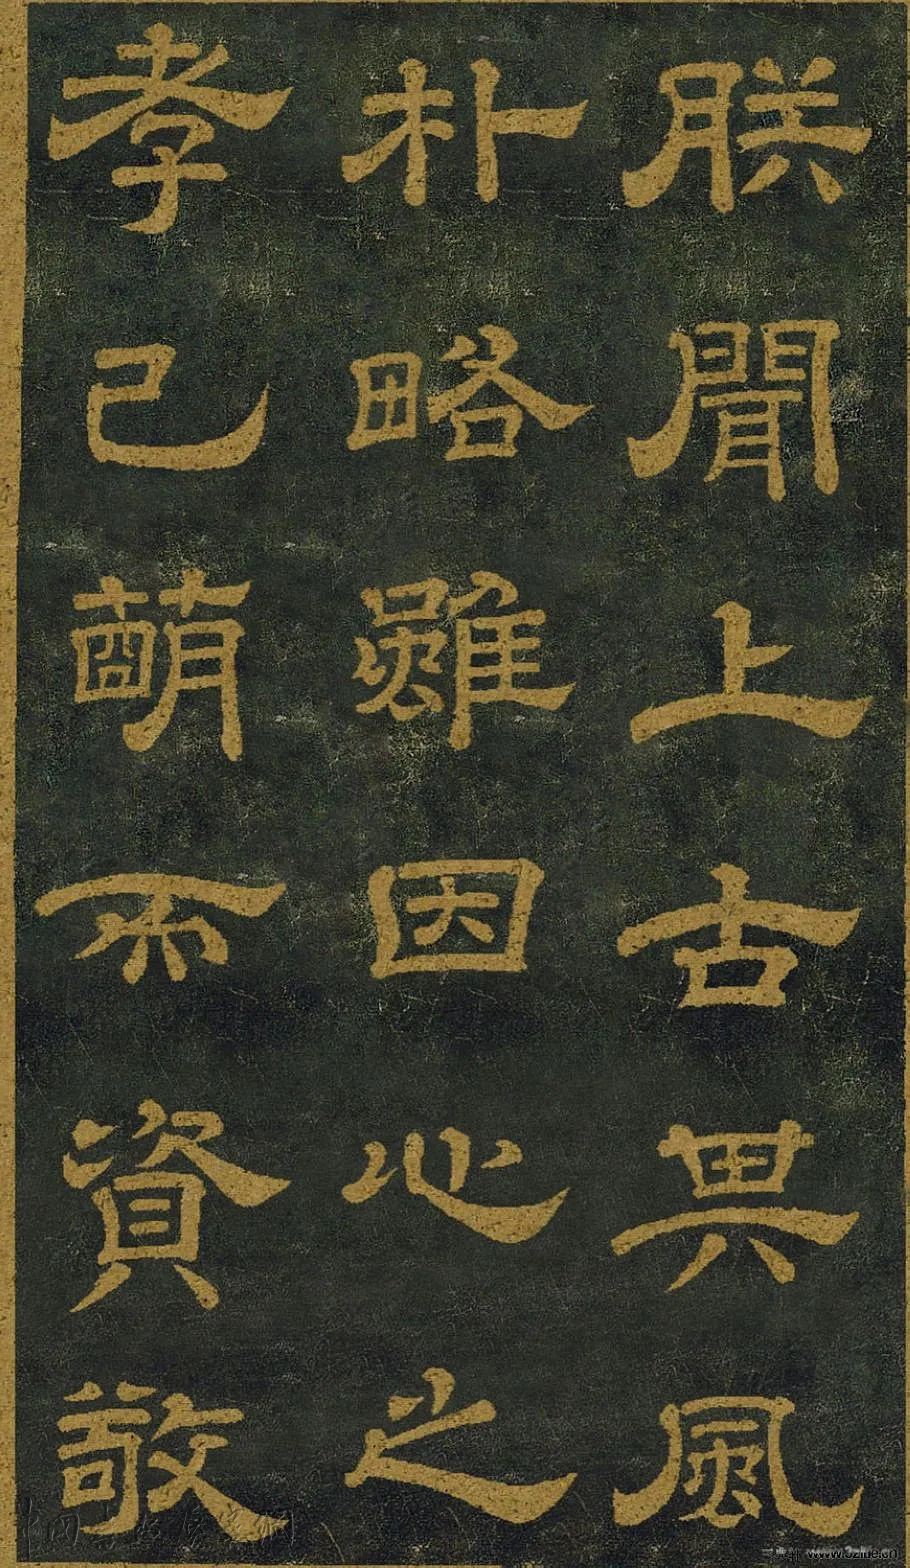 朕聞上古其風
朴略雖因心之
孝已萌而資敬
www.ozline.cn